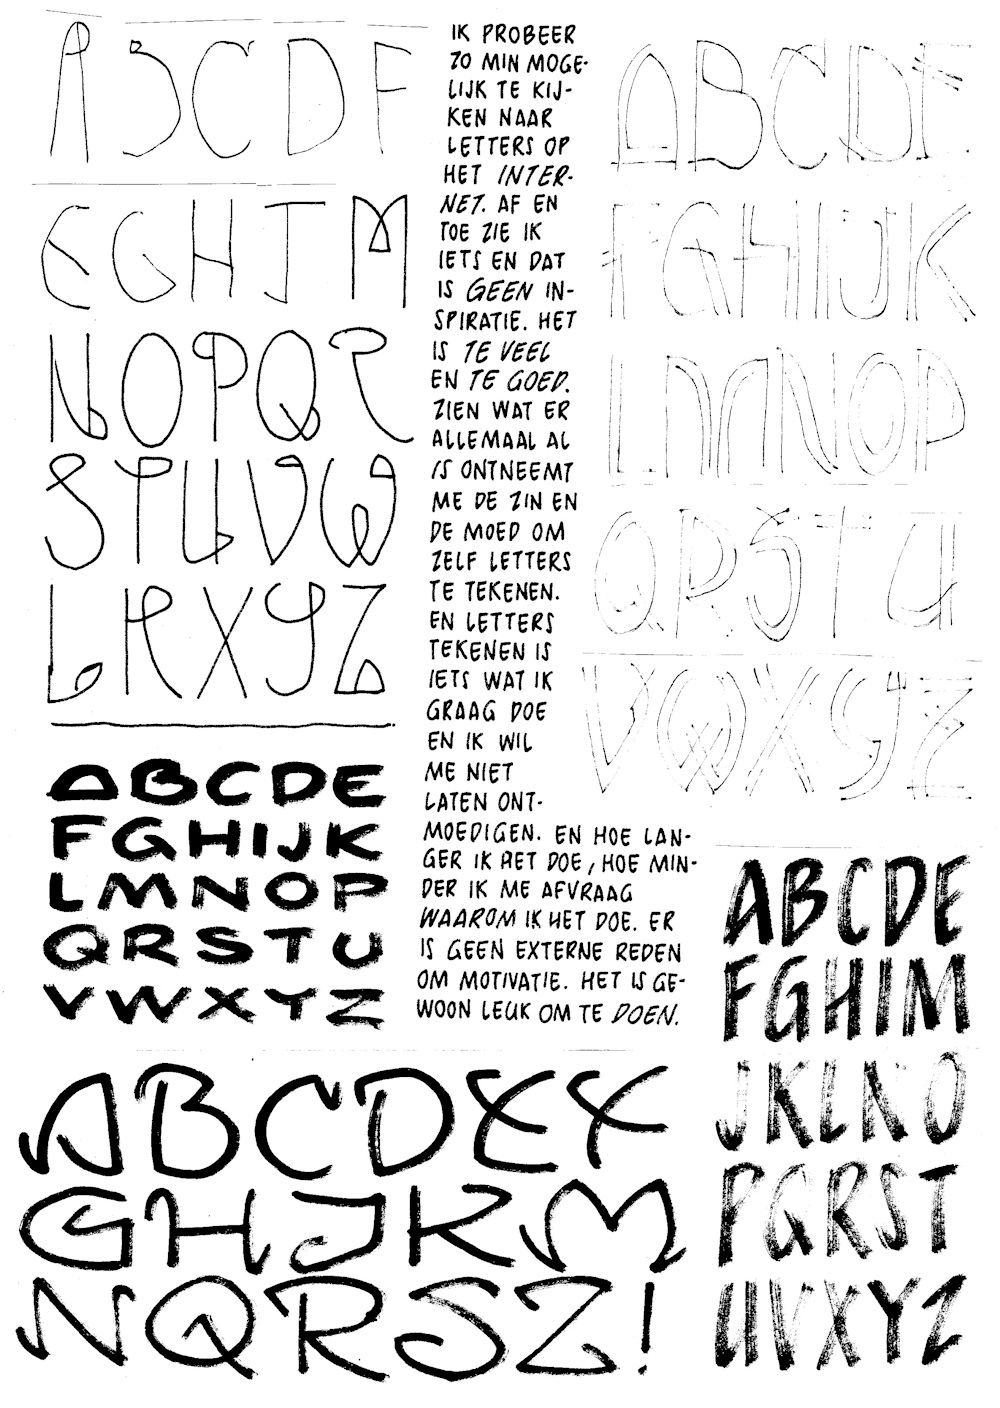 ABCDF
EGHJM
NOPQR
STUVW
LKXYZ
IK PROBEER
ZO MIN MOGE-
LIJK TE KIJ-
KEN NAAR
LETTERS OP
HET INTER-
NET. AF EN
TOE ZIE IK
IETS EN DAT
IS GEEN IN-
SPIRATIE. HET
IS TE VEEL
EN TE GOED.
ZIEN WAT ER
ALLEMAAL AL
IS ONTNEEMT
ME DE ZIN EN
DE MOED OM
ZELF LETTERS
TE TEKENEN.
EN LETTERS
TEKENEN IS
IETS WAT IK
GRAAG DOE
EN IK WIL
ME NIET
LATEN ONT-
MOEDIGEN. EN HOE LAN-
GER IK HET DOE, HOE MIN-
DER IK ME AFVRAAG
WAAROM IK HET DOE. ER
IS GEEN EXTERNE REDEN
OM MOTIVATIE. HET IS GE-
WOON LEUK OM TE DOEN.
ABCDE
FGHIJK
LMNOP
QRSTU
VWXYZ
ABCDEF
GHJKM
NQRSZ!
ABCDE
FGHIJK
LMNOP
QRSTU
VWXYZ
ABCDE
FGHIM
JKLNO
PQRST
UVXYZ